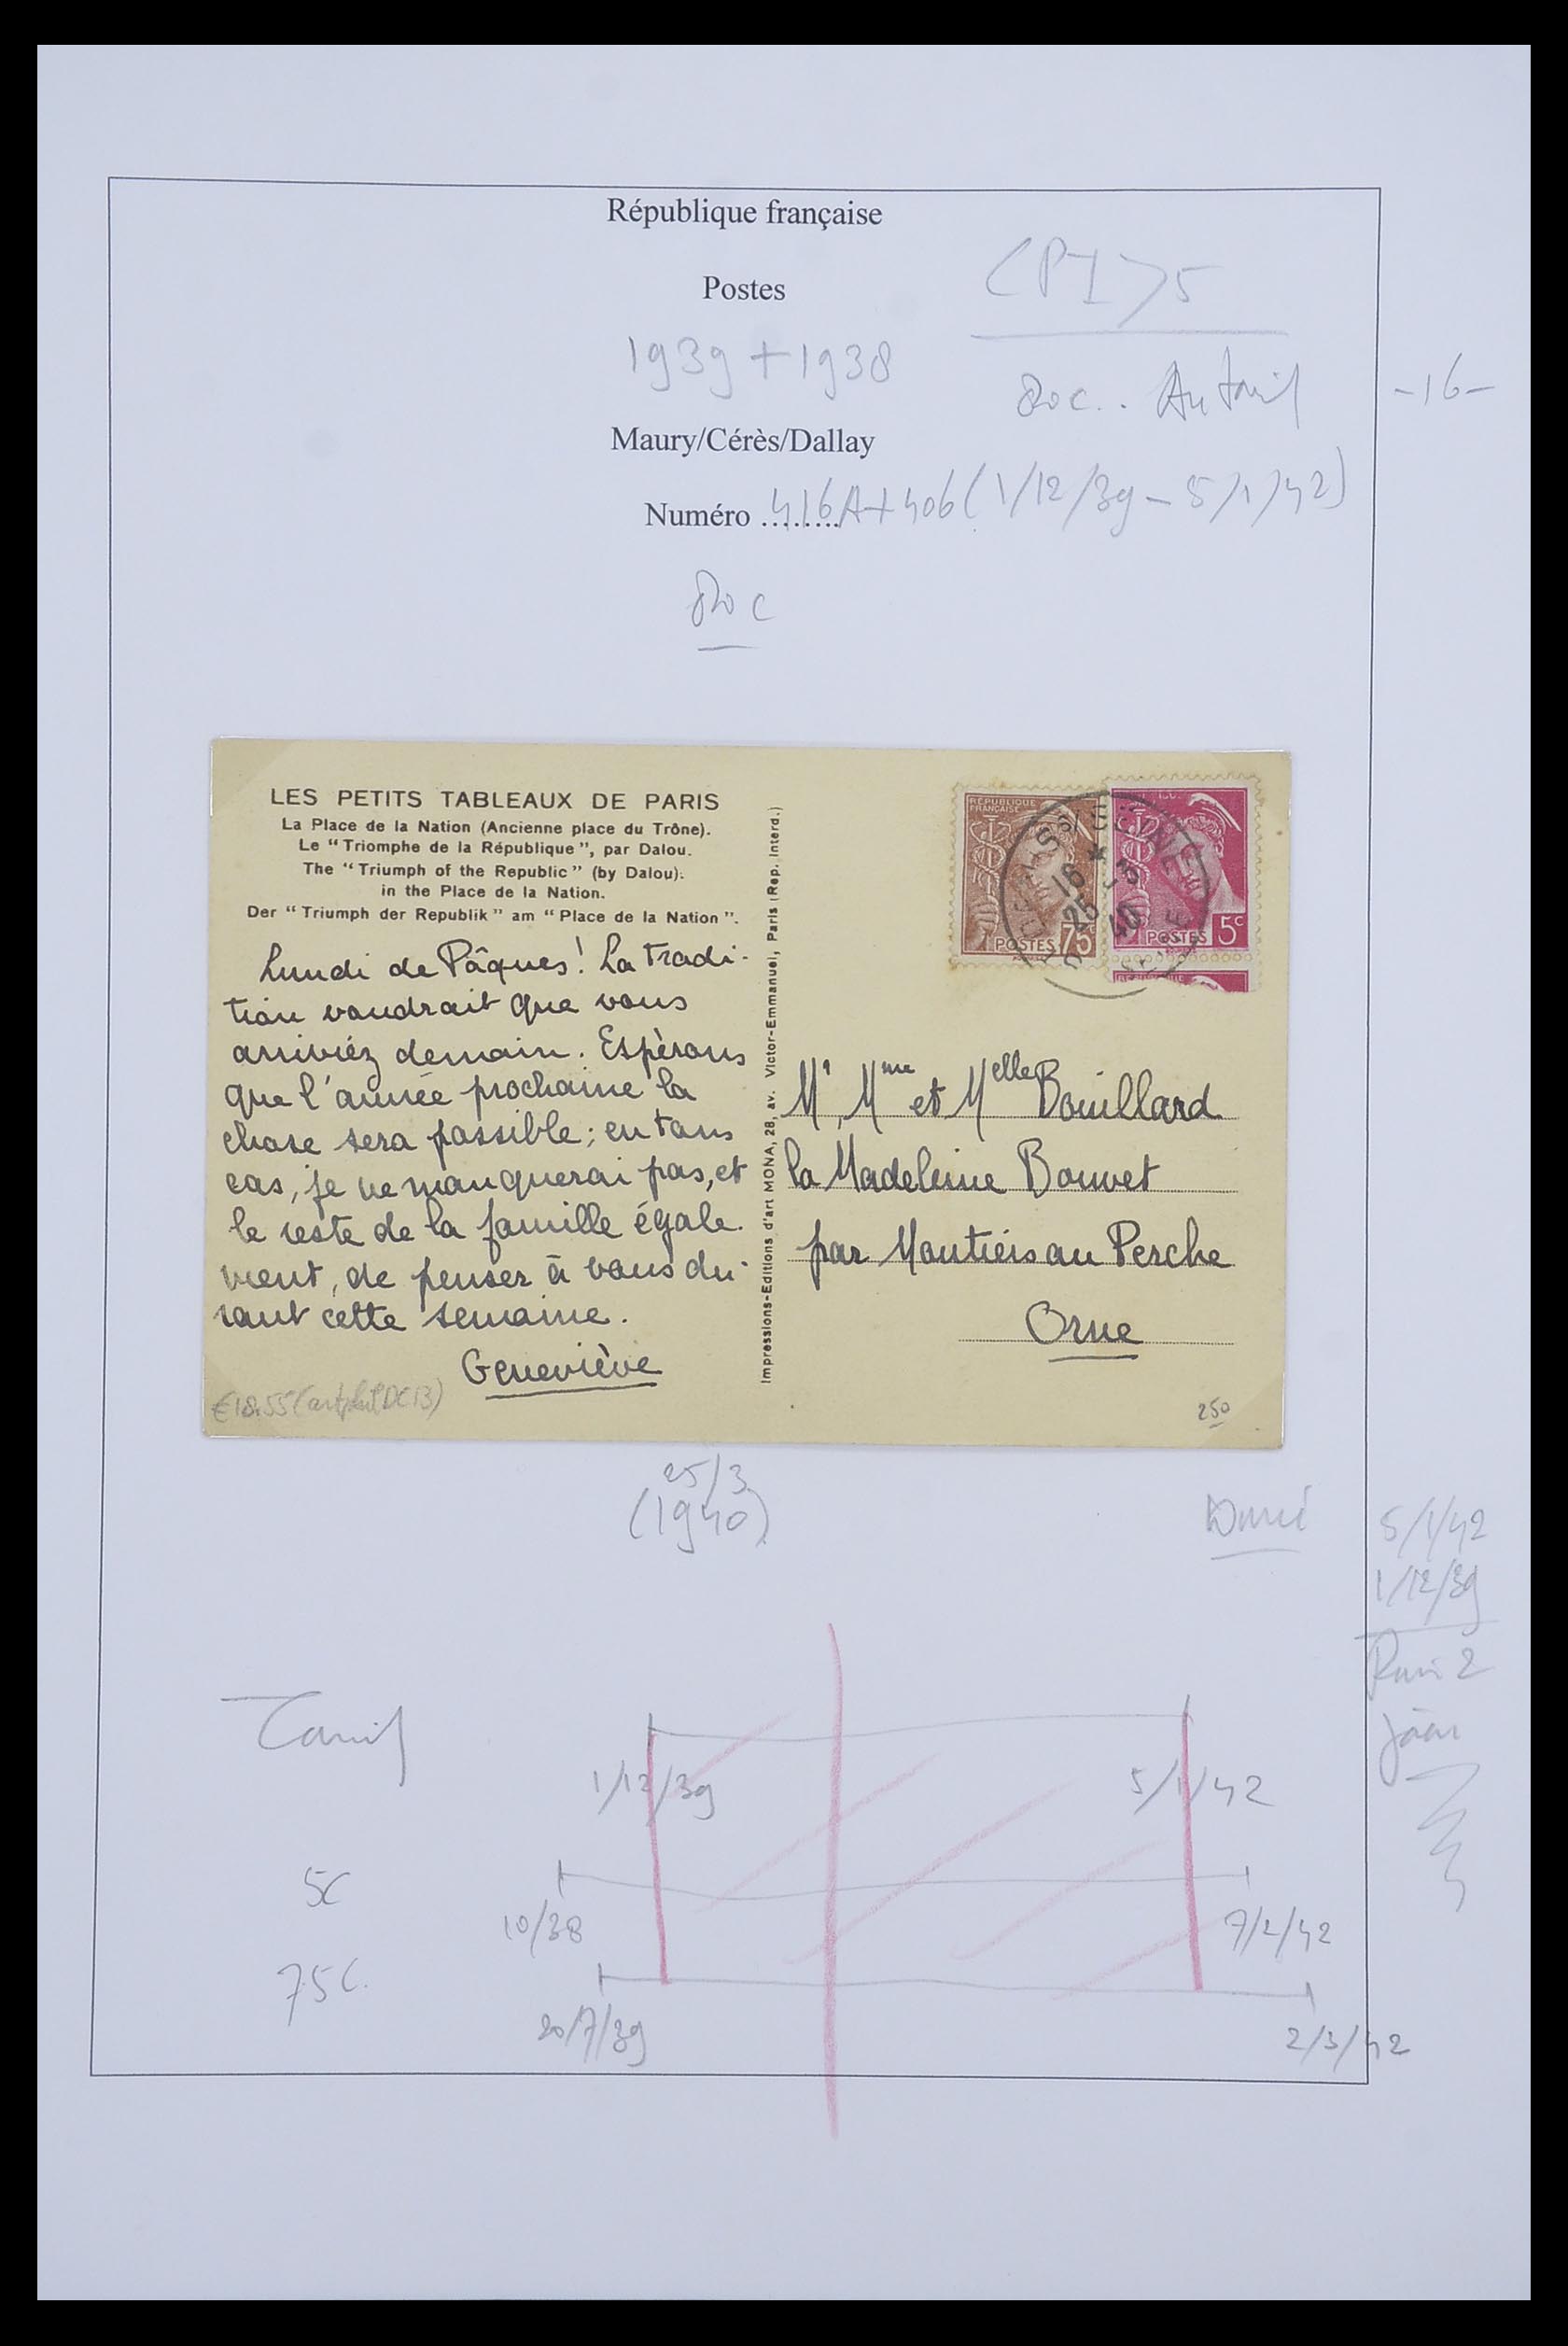 République française
Postes
(PI>5
1939+1938
-16-
Maury/Cérès/Dallay
Numéro ........ 416A+406(1/12/39-5/1/42)
LES PETITS TABLEAUX DE PARIS
La Place de la Nation (Ancienne place du Trône).
Le "Triomphe de la République", par Dalou.
The "Triumph of the Republic" (by Dalou).
in the Place de la Nation.
Der "Triumph der Republik" am "Place de la Nation".
Lundi de Pâques! La tradi-
tion voudrait que vous
arriviéz demain. Espèrons
que l'année prochaine la
chose sera possible; en tous
cas, je ne manquerai pas, et
le reste de la famille égale-
ment, de penser à vous du-
rant cette semaine.
Geneviève
€18.55
Impressions-Editions d'art MONA, 28, av. Victor-Emmanuel, Paris (Rep. Interd.)
RÉPUBLIQUE
FRANÇAISE
POSTES 75c
POSTES 5c
16
25 -3
40
Mr, Mme et Melle Bouillard
la Madeleine Bouvet
par Moutiers au Perche
Orne
250
25/3
(1940)
5/1/42
1/12/39
Tarif
1/12/39
5/1/42
5c
10/38
7/2/42
75c.
20/7/39
2/3/42